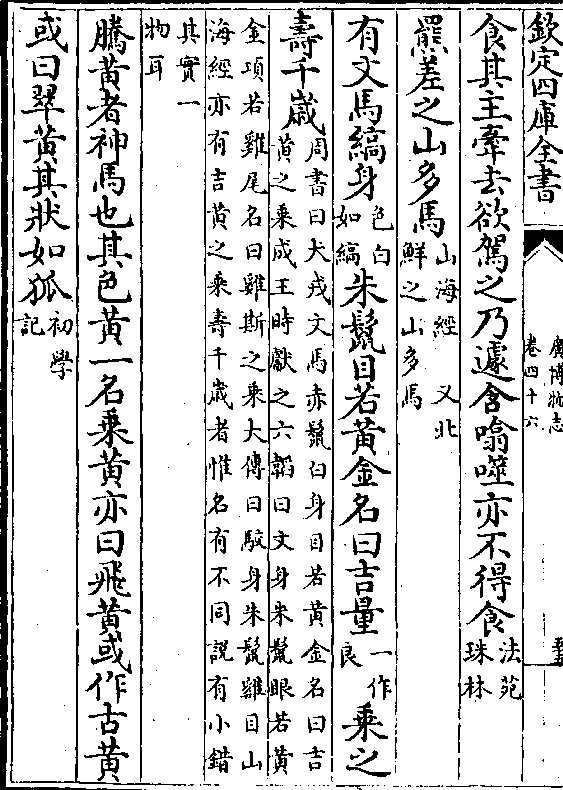 欽定四庫全書
廣博物志
卷四十六
食其主牽去欲駕之乃遽含噏噬亦不得食法苑珠林
羆差之山多馬山海經 又北鮮之山多馬
有文馬縞身色白如縞朱鬛目若黃金名曰吉量一作良乘之
壽千歲周書曰犬戎文馬赤鬛白身目若黃金名曰吉黃之乘成王時獻之六韜曰文身朱鬛眼若黃
金項若雞尾名曰雞斯之乘大傳曰駮身朱鬛雞目山海經亦有吉黃之乘壽千歲者惟名有不同說有小錯
其實一物耳
騰黃者神馬也其色黃一名乘黃亦曰飛黃或作古黃
或曰翠黃其狀如狐初學記